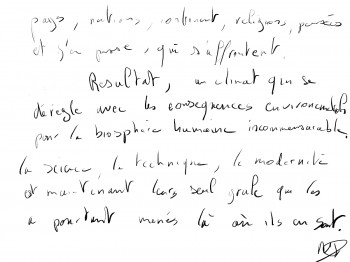 pays, nations, continent, religions, pensées
et j'en passe, qui s'affrontent.
Resultat, un climat qui se
dérègle avec les consequences environnementales
pour la biosphère humaine incommensurable.
la science, la technique, la modernité
et maintenant leurs seul graal que les
a pourtant menés là où ils en sont.